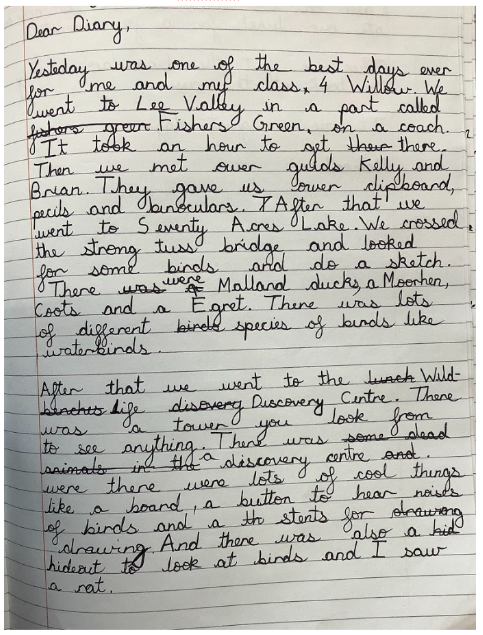 Dear Diary,
Yesteday was one of the best days ever
for me and my class, 4 Willow. We
went to Lee Valley in a part called
fishers green Fishers Green, on a coach.
It took an hour to get their there.
Then we met ower guids Kelly and
Brian. They gave us ower clipboard,
pecils and binoculars. After that we
went to Seventy Acres Lake. We crossed
the strong tuss bridge and looked
for some birds and do a sketch.
There was were Malland ducks, a Moorhen,
Coots and a Egret. There was lots
of different birds species of birds like
waterbirds.
After that we went to the lunch Wild-
benches life disovery Discovery Centre. There
was a tower you look from
to see anything. There was some dead
animals in the a discovery centre and.
were there were lots of cool things
like a board, a button to hear noises
of birds and a th stents for drawing
drawing. And there was also a hid
hideout to look at birds and I saw
a rat.